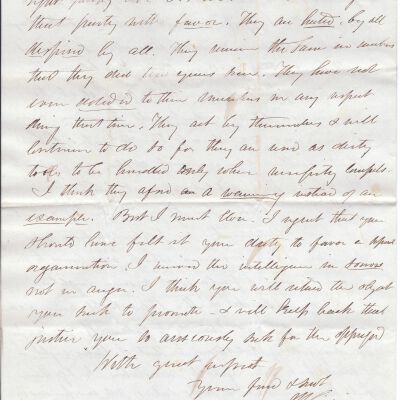 that party with favor. They are hated, by all
despised by all. They remain the same in numbers
that they did ten years since. They have not
even added to their numbers in any respect
during that time. They act by themselves & will
continue to do so for they are used as dirty
tools to be handled only when necessity compels.
I think they afford us a warning instead of an
example. But I must close. I regret that you
should have felt it your duty to favor a
organization. I received the intelligence in sorrow
not in anger. I think you will retard the object
you seek to promote & will keep back that
justice you so anxiously seek for the oppressed
With great respect
Your friend &